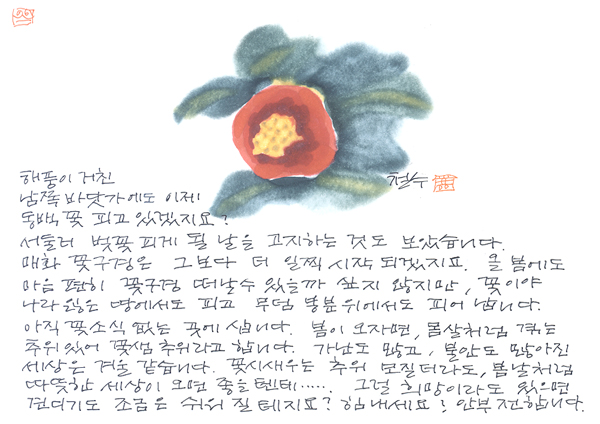 해풍이 거친
남쪽 바닷가에도 이제
동백꽃 피고 있겠지요?
철수
서둘러 벚꽃 피게 될 날을 고지하는 것도 보았습니다.
매화 꽃구경은 그보다 더 일찍 시작되겠지요. 올 봄에도
마음 편히 꽃구경 떠날수 있을까 싶지 않지만, 꽃이야
나라 잃은 땅에서도 피고 무덤 봉분위에서도 피어 납니다.
아직 꽃소식 없는 곳에 삽니다. 봄이 오자면, 몸살처럼 겪는
추위 있어 꽃샘 추위라고 합니다. 가난도 많고, 불안도 많아진
세상은 겨울 같습니다. 꽃시새우는 추위 모질더라도, 봄날처럼
따뜻한 세상이 오면 좋을텐데‥‥‥. 그럴 희망이라도 있으면
견디기도 조금은 쉬워 질 테지요? 힘내세요! 안부 전합니다.